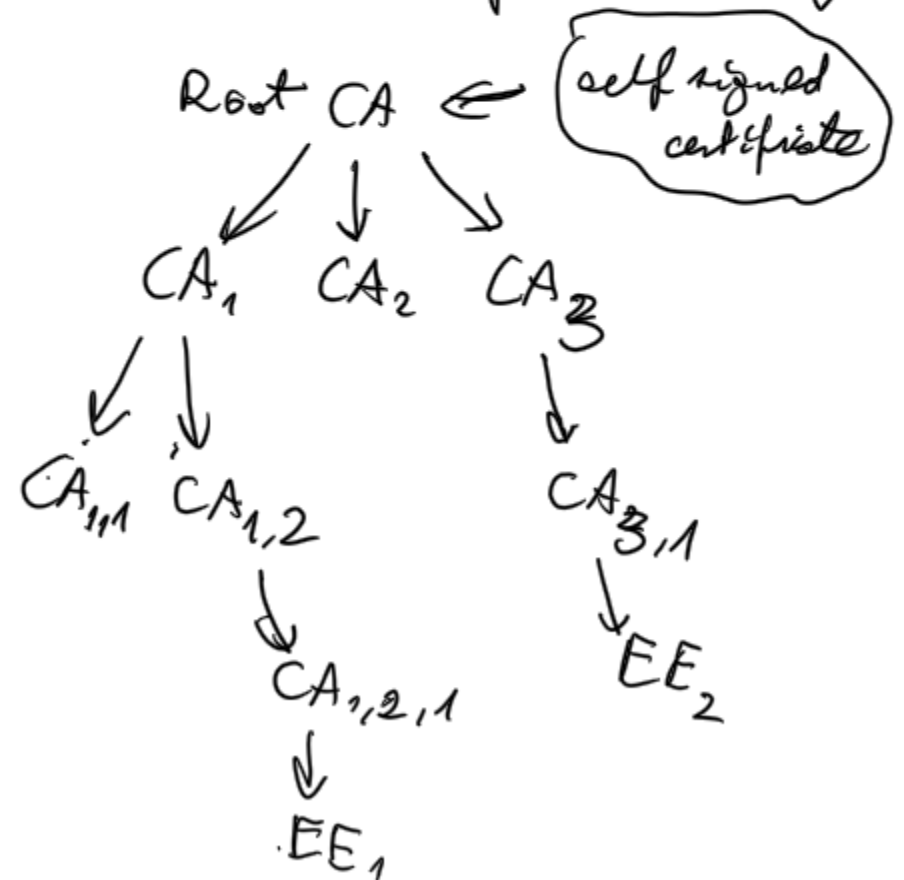 Root CA
self signed
certifiate
CA₁ CA₂ CA₃
CA₁,₁ CA₁,₂ CA₃,₁
CA₁,₂,₁ EE₂
EE₁